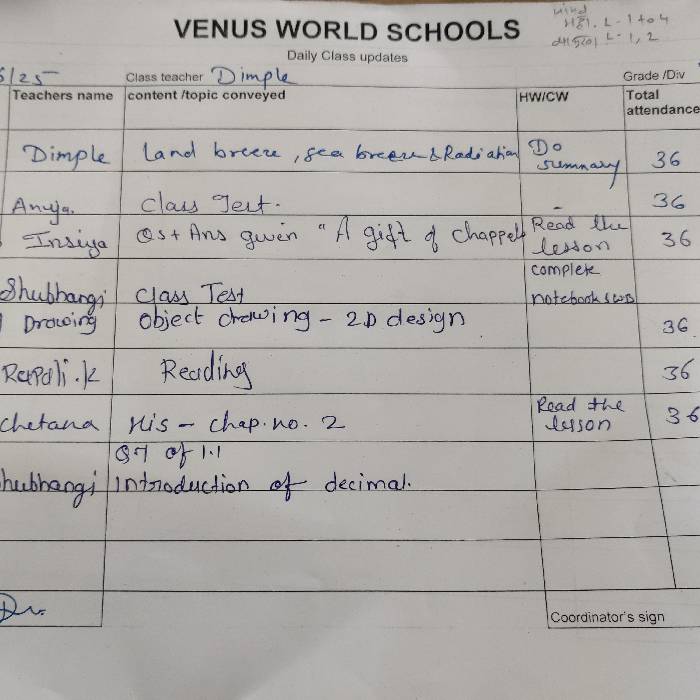 Hind
VENUS WORLD SCHOOLS
L - 1 to 4
L - 1, 2
Daily Class updates
/25
Class teacher Dimple
Grade /Div
Teachers name content /topic conveyed HW/CW Total attendance
Dimple Land breeze, sea breeze & Radiation Do summary 36
Anuja. Class Test. - 36
Insiya Qs + Ans given "A gift of chappels Read the lesson 36
Shubhangi Class Test complete notebook & WB
Drawing Object drawing - 2D design 36
Rupali.k Reading 36
Chetana His - chap. no. 2 Read the lesson 36
Q7 of 1.1
hubhangi Introduction of decimal.
Coordinator's sign